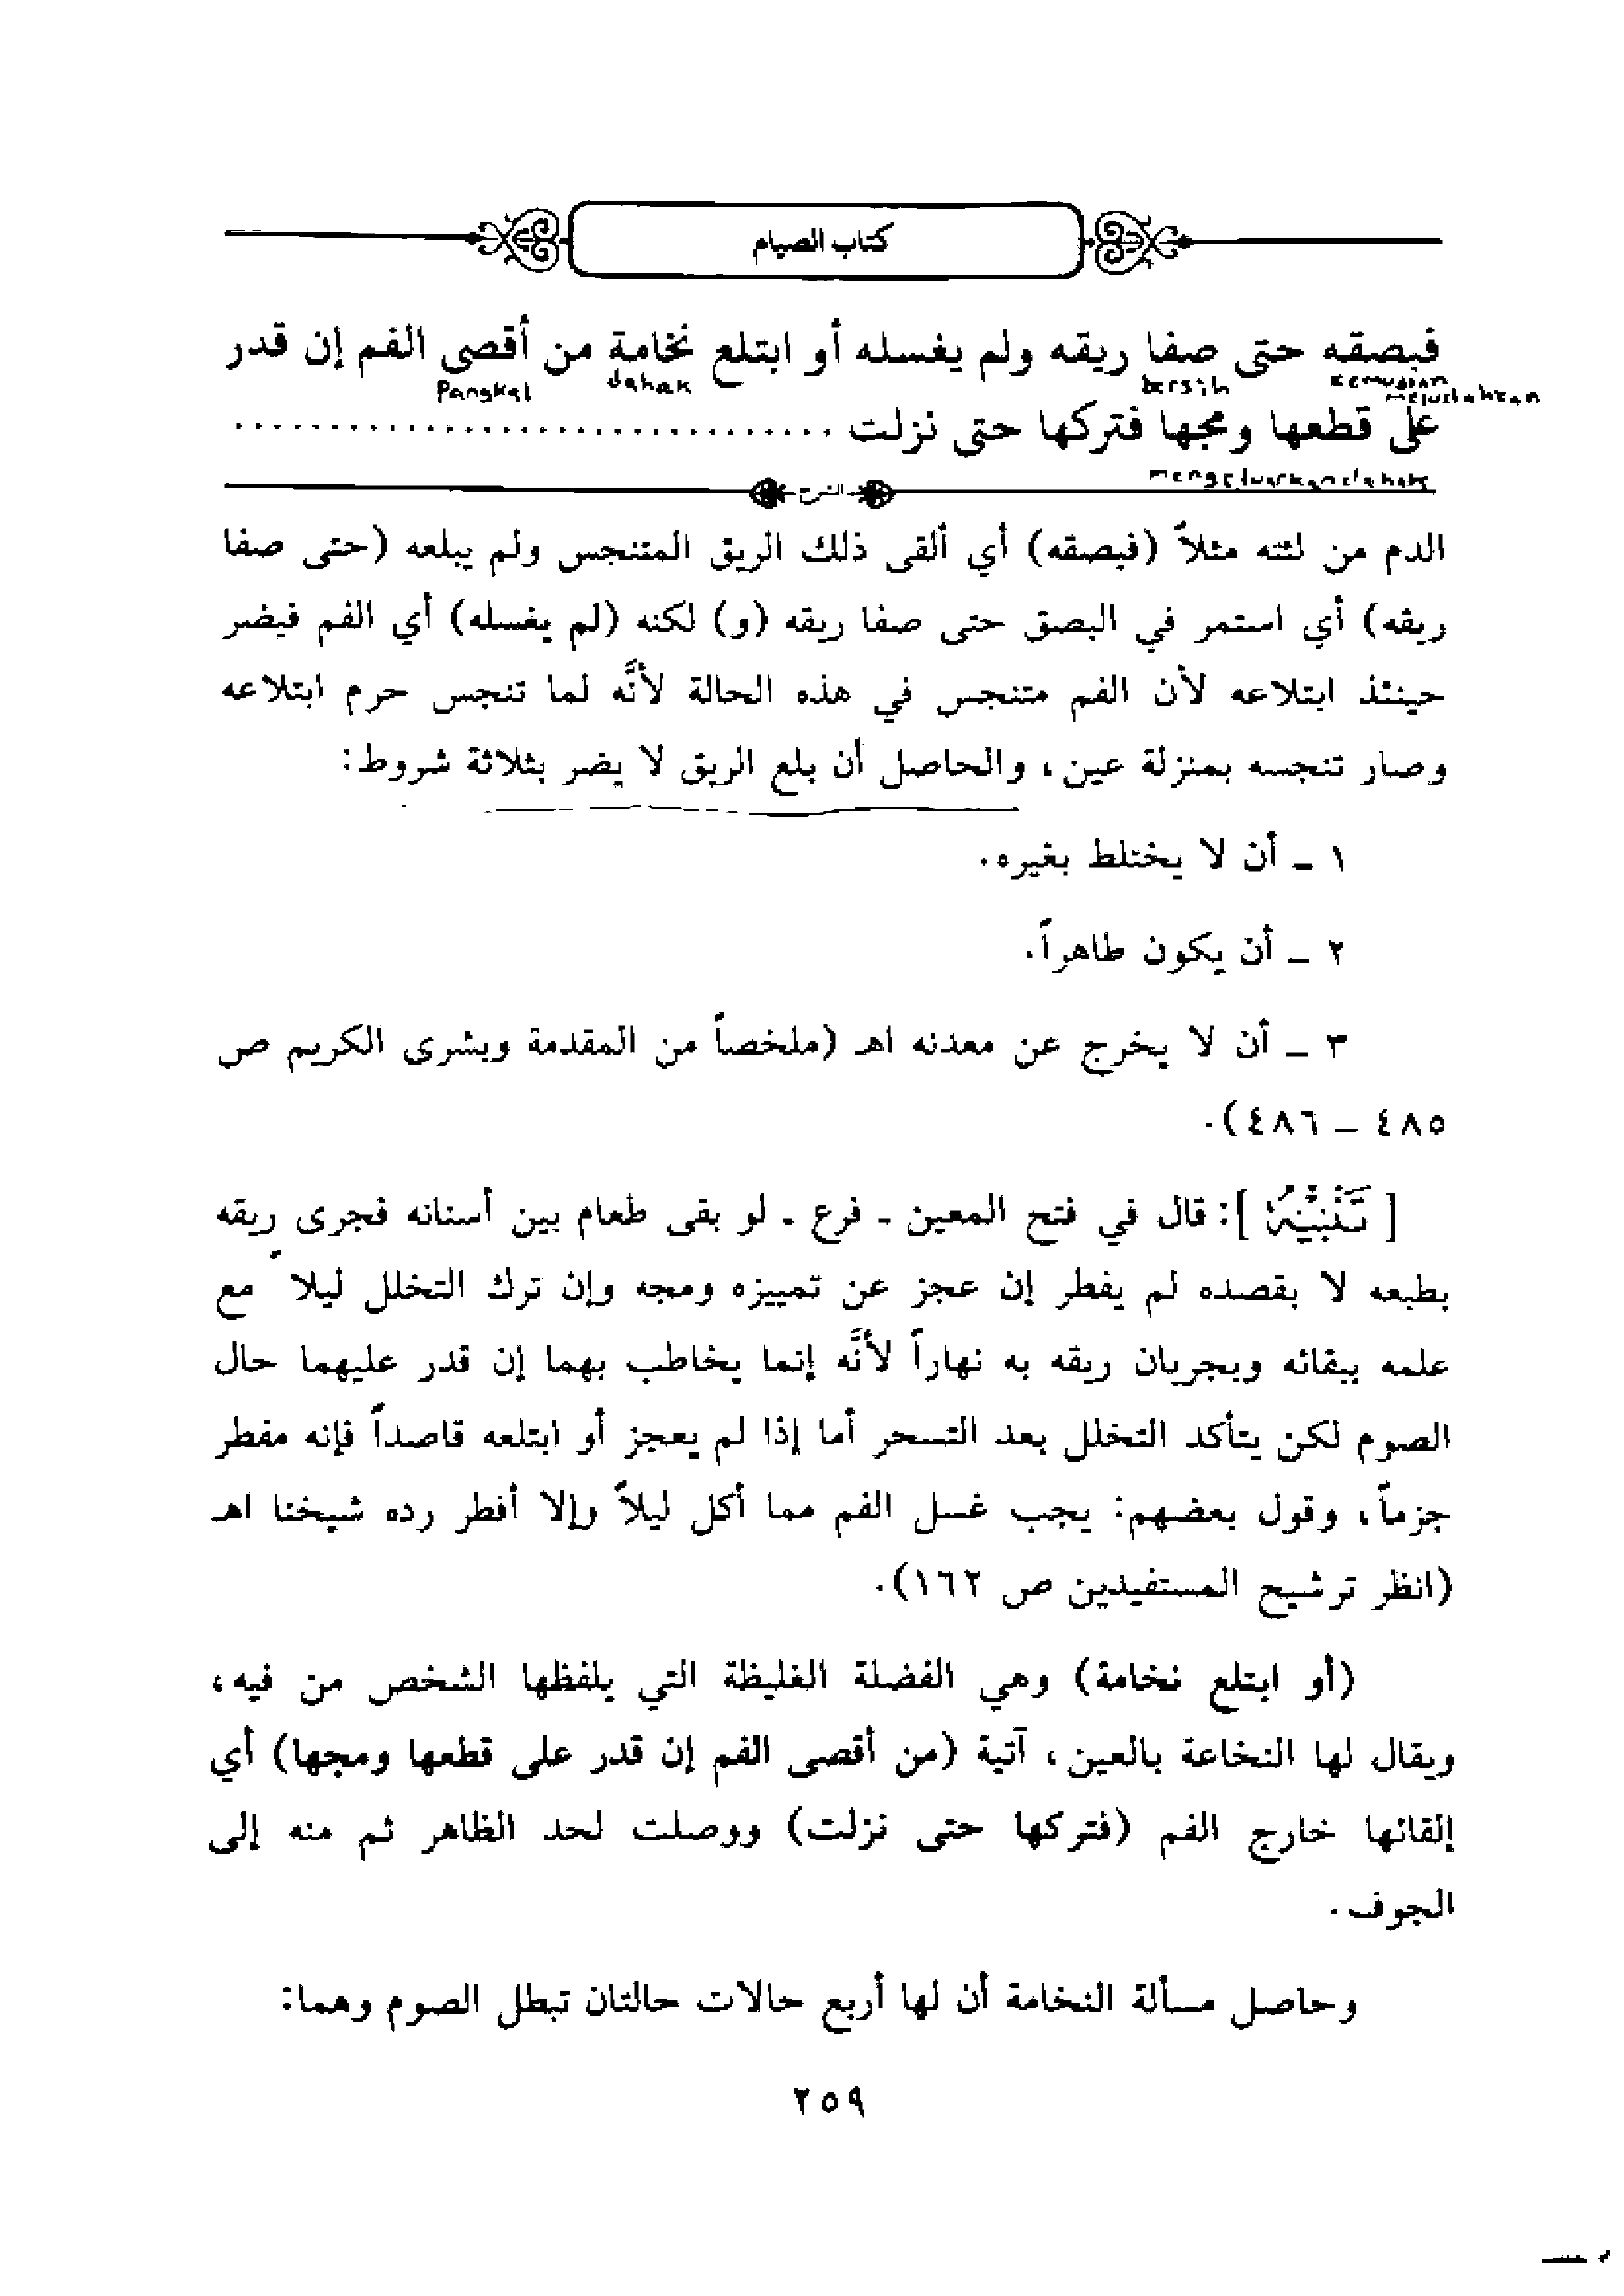 كتاب الصيام
فبصقه حتى صفا ريقه ولم يغسله أو ابتلع نخامة من أقصى الفم إن قدر
Pangkal dahak bersih kemudian mejudahkan
على قطعها ومجها فتركها حتى نزلت ................................
mengeluarkan dahak
الشرح
الدم من لثته مثلاً (فبصقه) أي ألقى ذلك الريق المتنجس ولم يبلعه (حتى صفا
ريقه) أي استمر في البصق حتى صفا ريقه (و) لكنه (لم يغسله) أي الفم فيضر
حينئذ ابتلاعه لأن الفم متنجس في هذه الحالة لأنَّه لما تنجس حرم ابتلاعه
وصار تنجسه بمنزلة عين، والحاصل أن بلع الريق لا يضر بثلاثة شروط:
١ - أن لا يختلط بغيره.
٢ - أن يكون طاهراً.
٣ - أن لا يخرج عن معدنه اهـ (ملخصاً من المقدمة وبشرى الكريم ص
٤٨٥ - ٤٨٦).
[تَنْبِيْهٌ]: قال في فتح المعين - فرع - لو بقى طعام بين أسنانه فجرى ريقه
بطبعه لا بقصده لم يفطر إن عجز عن تمييزه ومجه وإن ترك التخلل ليلاً مع
علمه ببقائه وبجريان ريقه به نهاراً لأنَّه إنما يخاطب بهما إن قدر عليهما حال
الصوم لكن يتأكد التخلل بعد التسحر أما إذا لم يعجز أو ابتلعه قاصداً فإنه مفطر
جزماً، وقول بعضهم: يجب غسل الفم مما أكل ليلاً وإلا أفطر رده شيخنا اهـ
(انظر ترشيح المستفيدين ص ١٦٢).
(أو ابتلع نخامة) وهي الفضلة الغليظة التي يلفظها الشخص من فيه،
ويقال لها النخاعة بالعين، آتية (من أقصى الفم إن قدر على قطعها ومجها) أي
إلقائها خارج الفم (فتركها حتى نزلت) ووصلت لحد الظاهر ثم منه إلى
الجوف.
وحاصل مسألة النخامة أن لها أربع حالات حالتان تبطل الصوم وهما:
٢٥٩